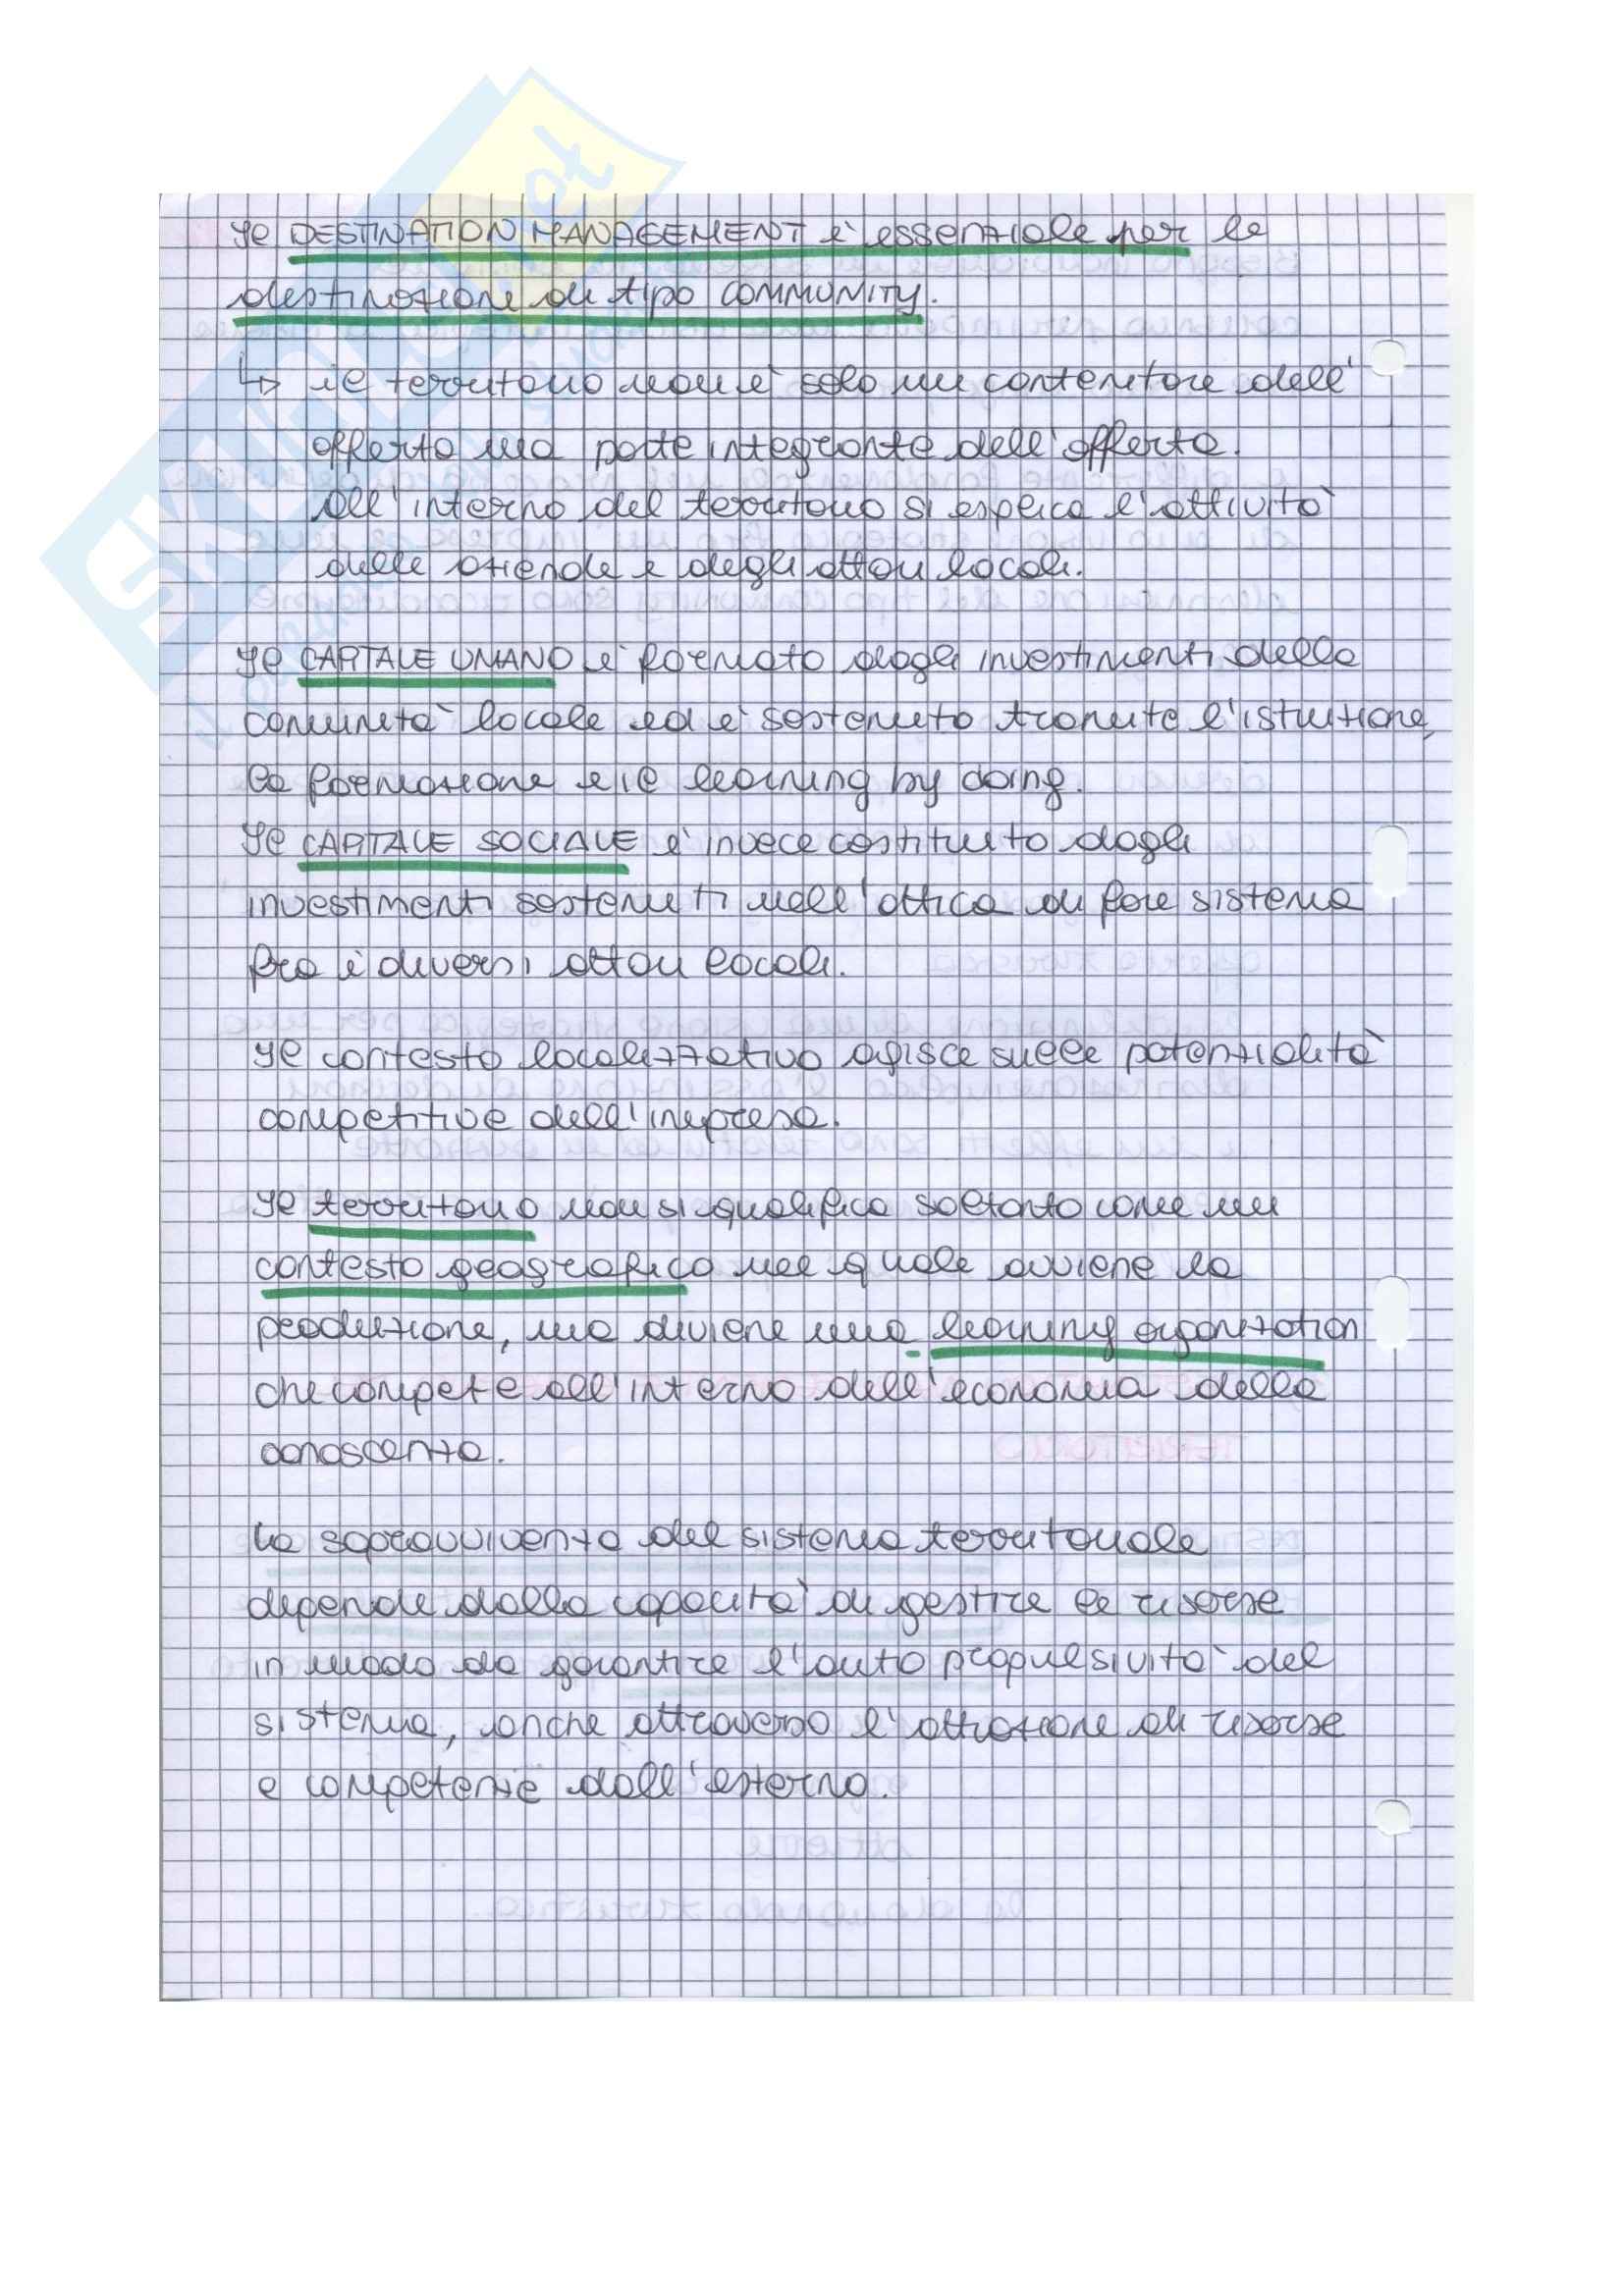 Il DESTINATION MANAGEMENT è essenziale per le
destinazioni di tipo COMMUNITY.
↳ il territorio non è solo un contenitore dell'
offerta ma parte integrante dell'offerta.
All'interno del territorio si esplica l'attività
delle aziende e degli attori locali.
Il CAPITALE UMANO è formato dagli investimenti della
comunità locale ed è sostenuto tramite l'istruzione,
la formazione e il learning by doing.
Il CAPITALE SOCIALE è invece costituito dagli
investimenti sostenuti nell'ottica di fare sistema
fra i diversi attori locali.
Il contesto localizzativo agisce sulle potenzialità
competitive dell'impresa.
Il territorio non si qualifica soltanto come un
contesto geografico nel quale avviene la
produzione, ma diviene una learning organization
che compete all'interno dell'economia della
conoscenza.
La sopravvivenza del sistema territoriale
dipende dalla capacità di gestire le risorse
in modo da garantire l'auto propulsività del
sistema, anche attraverso l'attrazione di risorse
e competenze dall'esterno.
SKUOLA.net